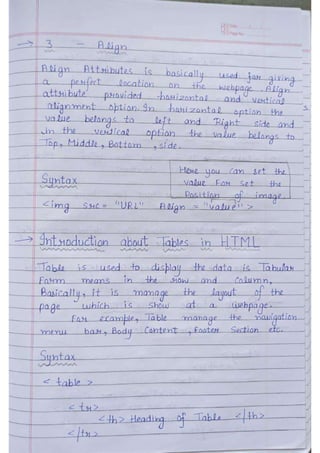 → 3 - Align
Align Attributes is basically used for giving
a perfect location on the webpage. Align
attribute provided horizontal and vertical
alignment option. In horizontal option the
value belongs to left and Right side and
in the vertical option the value belongs to
Top, Middle, Bottom, side.
Here you can set the
value For set the
Position of image
Syntax
<img src= "URL" Align = "value">
→ Introduction about Tables in HTML
Table is used to display the data is Tabular
Form means in the row and Column,
Basically, it is manage the layout of the
page which is show at a webpage.
For example, Table manage the navigation
menu bar, Body Content, Footer Section etc.
Syntax
< table >
< tr>
<th> Heading of Table </th>
</tr>